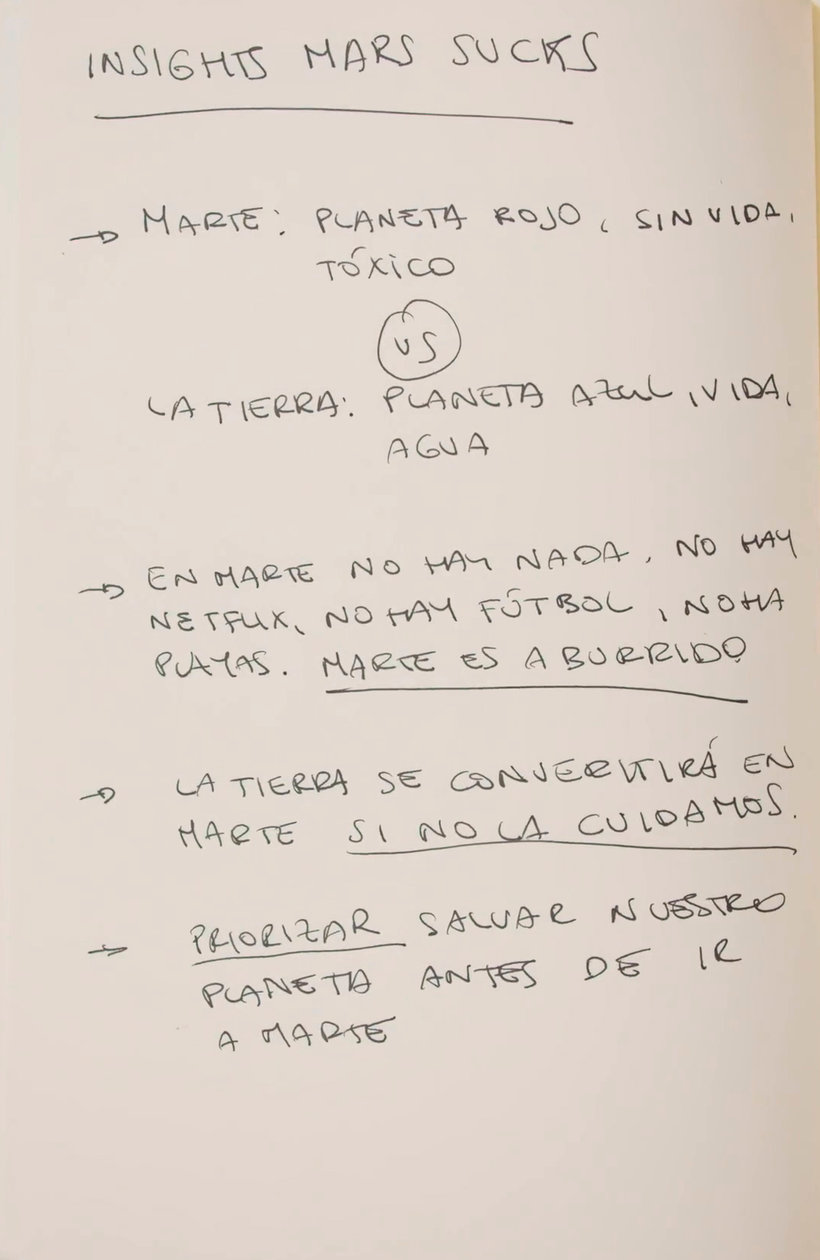 INSIGHTS MARS SUCKS
→ MARTE: PLANETA ROJO, SIN VIDA,
TÓXICO
VS
LA TIERRA: PLANETA AZUL, VIDA,
AGUA
→ EN MARTE NO HAY NADA, NO HAY
NETFLIX, NO HAY FÚTBOL, NO HA
PLAYAS. MARTE ES ABURRIDO
→ LA TIERRA SE CONVERITIRÁ EN
MARTE SI NO LA CUIDAMOS.
→ PRIORIZAR SALVAR NUESTRO
PLANETA ANTES DE IR
A MARTE